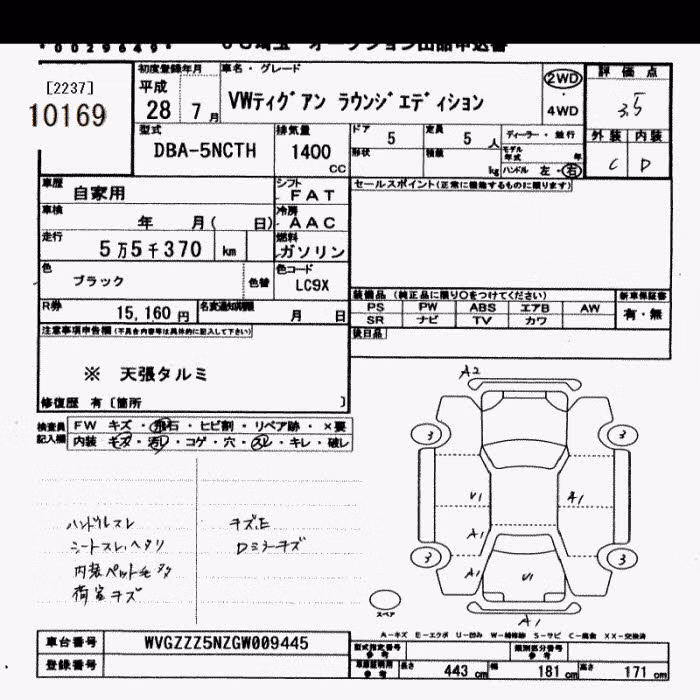 *0029649*
オークション出品申込書
[2237]
10169
初度登録年月
平成
28 7月
車名・グレード
VWティグアン ラウンジエディション
2WD
・
4WD
評価点
3.5
外装 内装
C D
型式
DBA-5NCTH
排気量
1400
CC
ドア
5
定員
5人
形状
積載
kg
ディーラー・並行
モデル年式
年
ハンドル 左・右
車歴
自家用
シフト
FAT
車検
年 月( 日)
冷房
AAC
走行
5万5千370 km
燃料
ガソリン
色
ブラック
色替
色コード
LC9X
R券
15,160円
名変通知期限
月 日
セールスポイント(正常に機能するものに限ります)
装備品 (純正品に限り○をつけてください)
PS PW ABS エアB AW
SR ナビ TV カワ
新車保証書
有・無
後日品
注意事項申告欄(不具合内容等は具体的に記入して下さい)
※ 天張タルミ
修復歴 有〔箇所 〕
検査員記入欄
FW キズ・飛石・ヒビ割・リペア跡・×要
内装 キズ・汚レ・コゲ・穴・スレ・キレ・破レ
ハンドルスレ
シートスレ、ヘタリ
内装ペット毛
荷室キズ
Dミラーキズ
A2
3 3
U1 A1
A1
A1 U1
3 3
A1
スペア
A-キズ E-エクボ U-凹み W-補修跡 S-サビ C-腐食 XX-交換済
車台番号
WVGZZZ5NZGW009445
登録番号
型式指定番号
参考
類別区分番号
参考
車庫証明用
参考
長さ 443cm 幅 181cm 高さ 171cm